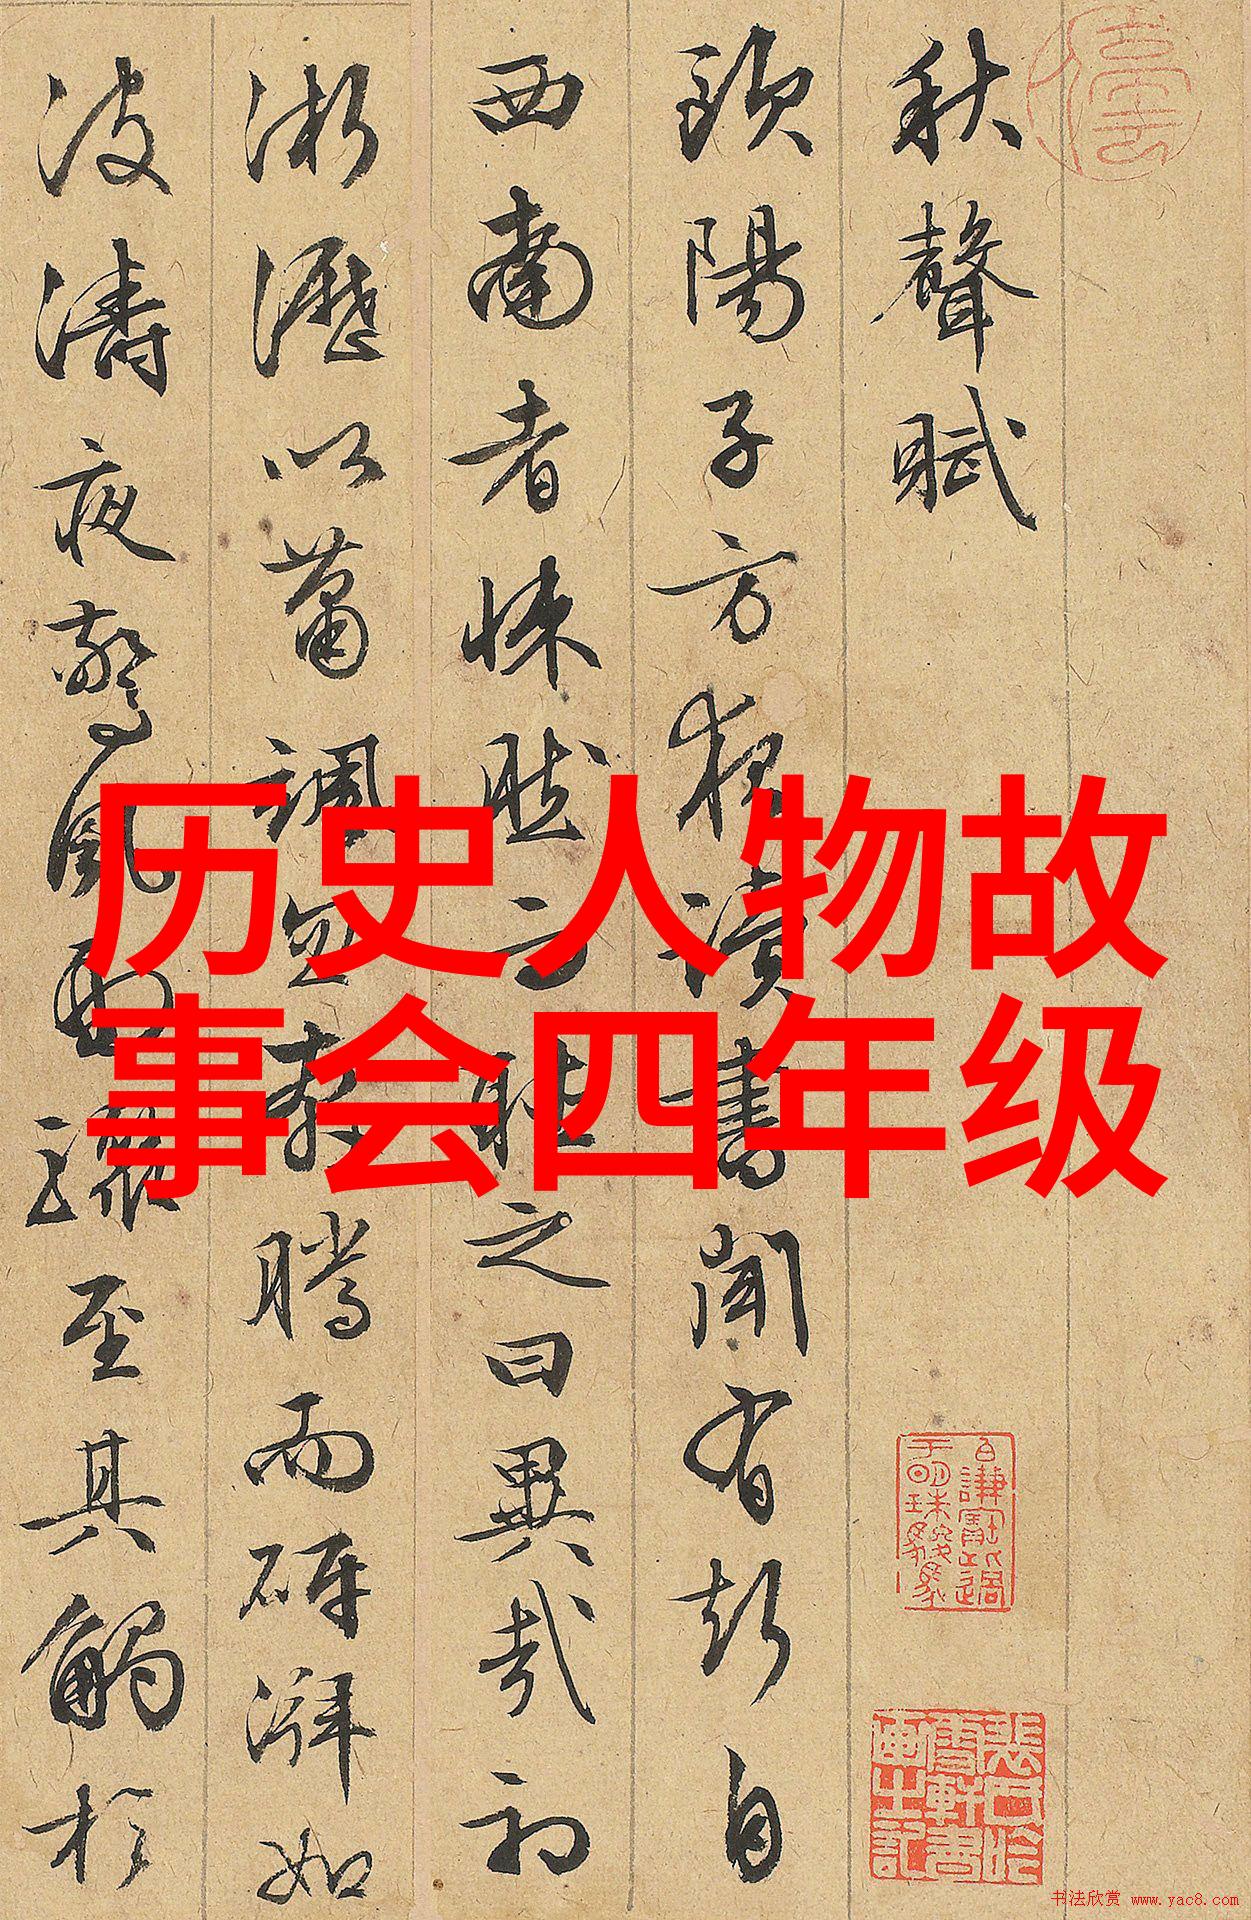 秋聲賦
歐陽子方夜讀書聞有聲自
西南者悚然而聽之曰異哉初
淅瀝以蕭颯忽奔騰而砰湃如
波濤夜驚風雨驟至其觸於
历史人物故
事会四年级
书法欣赏 www.yac8.com